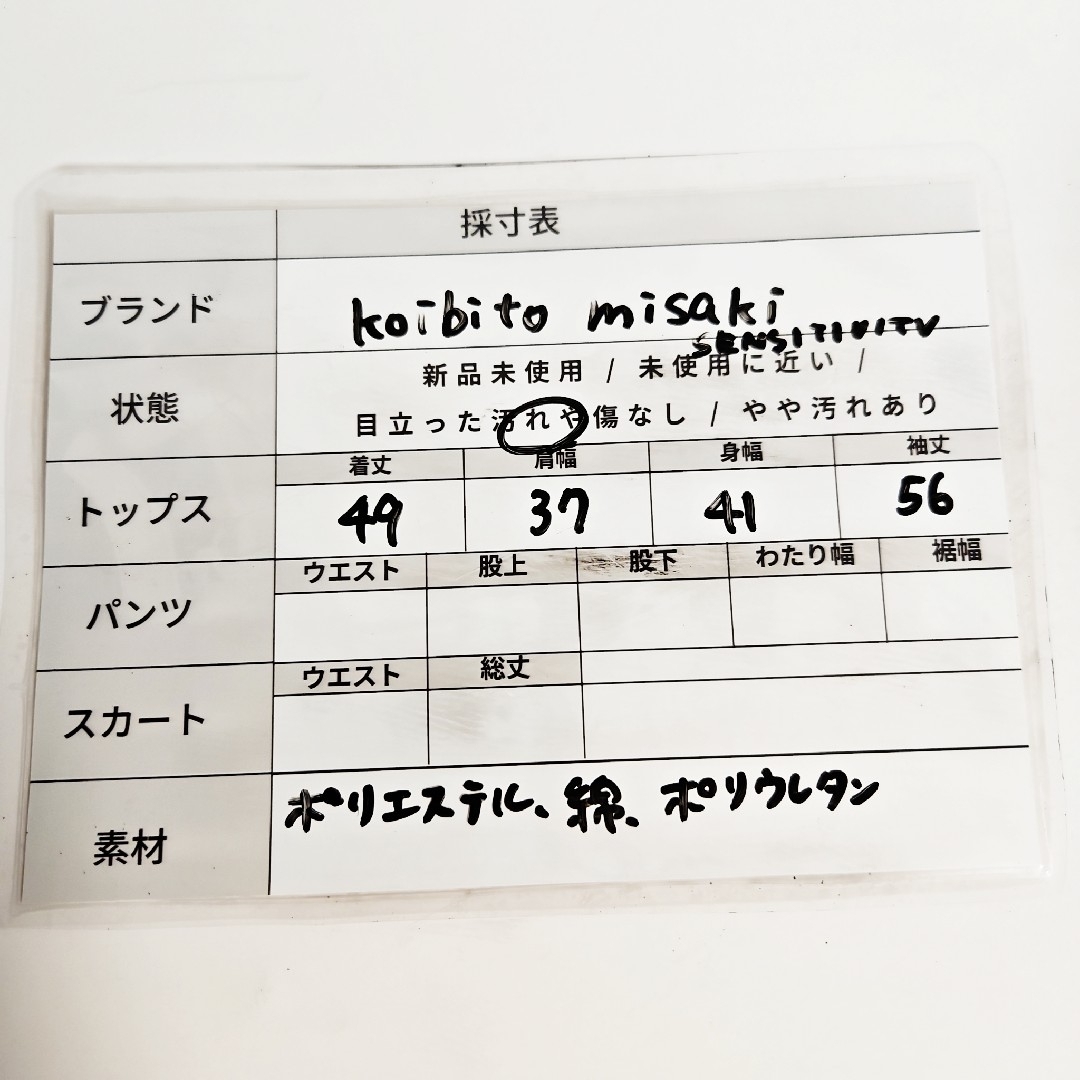 採寸表
ブランド koibito misaki
SENSITIVITY
新品未使用 / 未使用に近い /
状態
目立った汚れや傷なし / やや汚れあり
着丈 肩幅 身幅 袖丈
トップス 49 37 41 56
ウエスト 股上 股下 わたり幅 裾幅
パンツ
ウエスト 総丈
スカート
ポリエステル、綿、ポリウレタン
素材